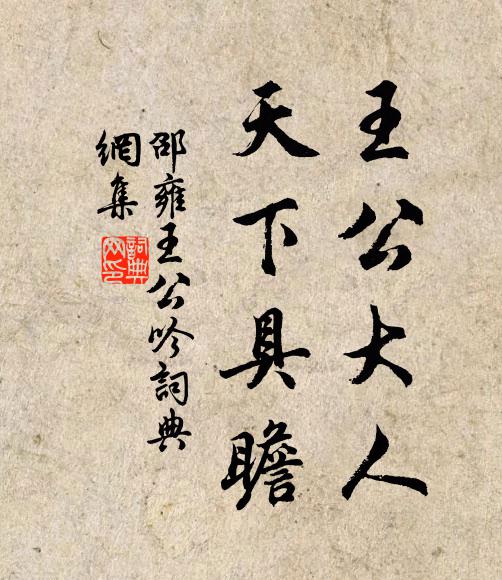 王公大人
天下具瞻
邵雍王公吟詞典
網集
詞典
网印